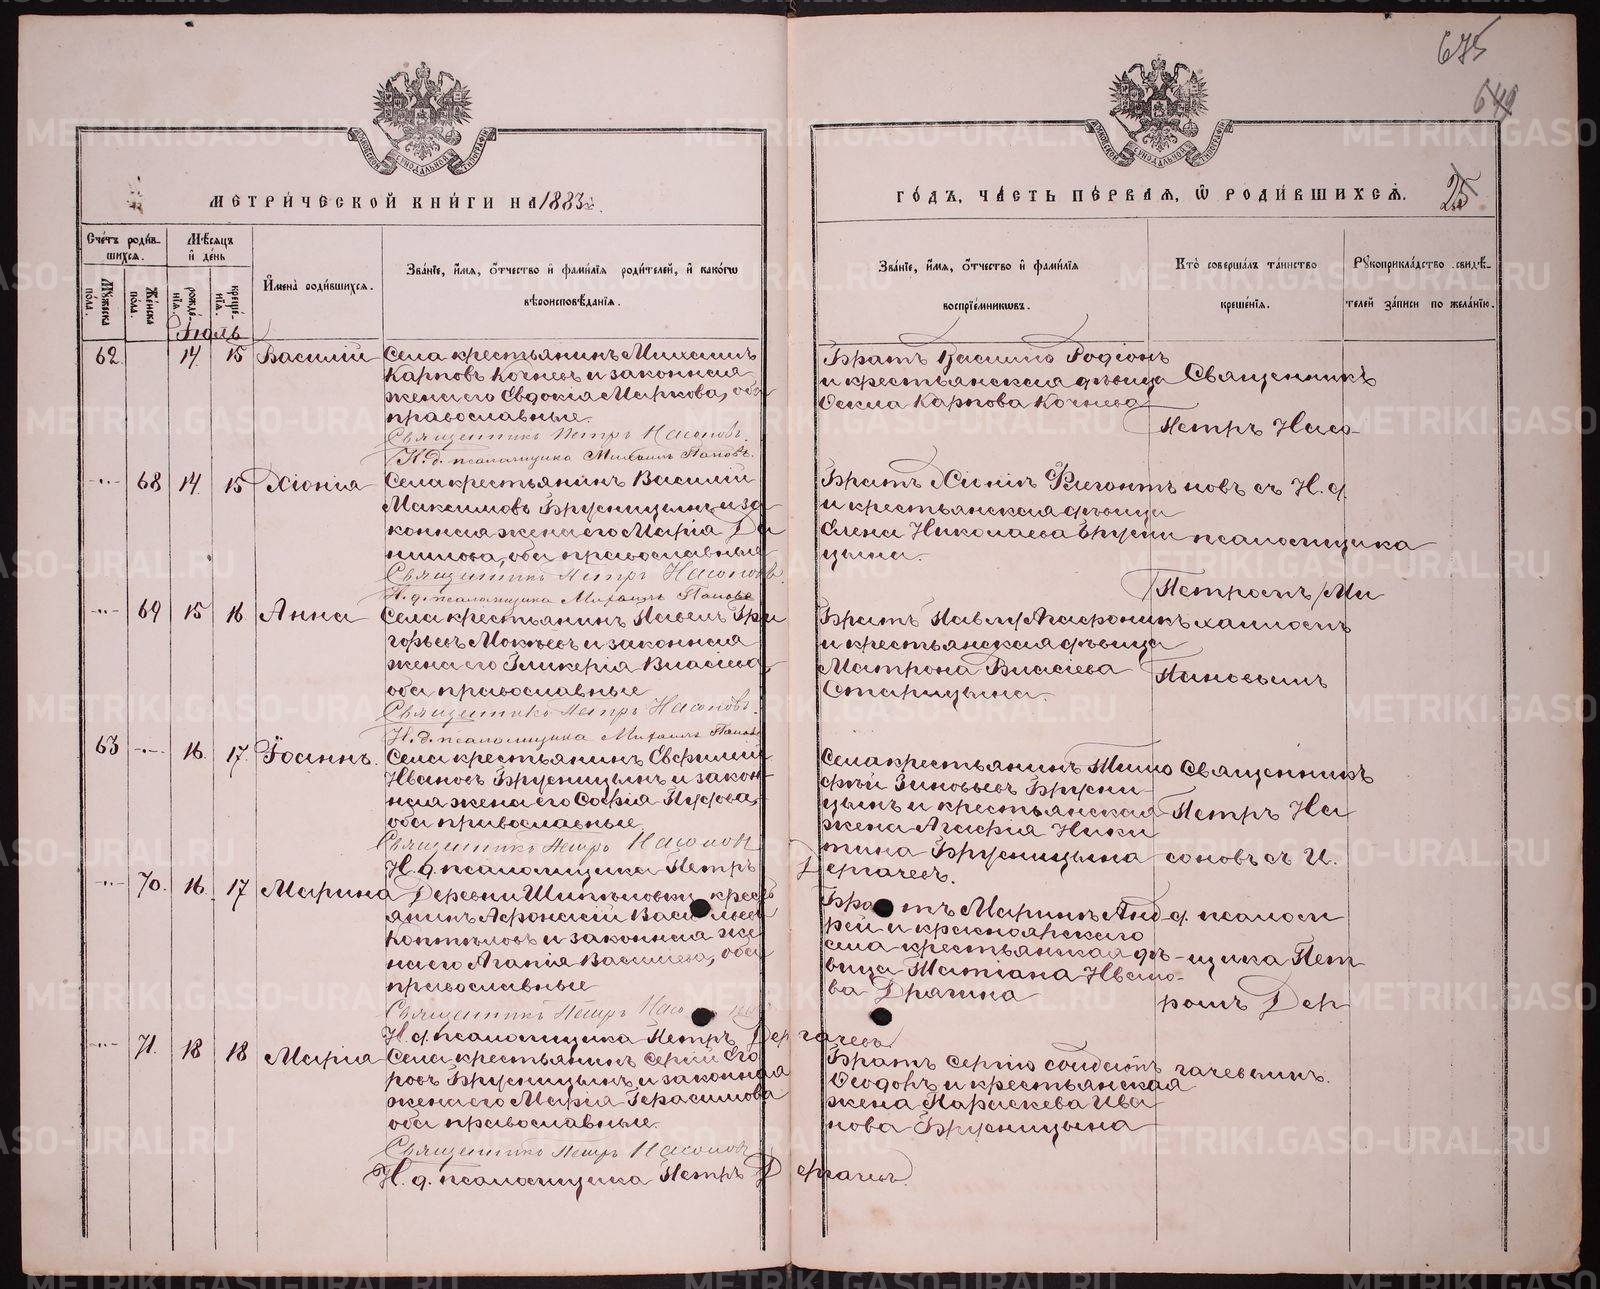 675
649
МЕТРИ́ЧЕСКОЙ КНИ́ГИ НА 1883
ГО́ДЪ, ЧА́СТЬ ПЕ́РВАЯ, Ѽ РОДИ́ВШИХСѦ.
25
Сче́тъ роди́в-
шихся.
Мѣ́сяцъ
и҆ де́нь
Му́жеска
по́ла.
Же́нска
по́ла.
рожде́-
нїя.
креще́-
нїя.
И҆мена̀ роди́вшихся.
Зва́нїе, и҆́мя, ѻ҆́тчество и҆ фами́лїя роди́телей, и҆ како́гѡ
вѣроисповѣ́данїя.
Зва́нїе, и҆́мя, ѻ҆́тчество и҆ фами́лїя
воспрїе́мниковъ.
Кто̀ соверша́лъ та́инство
креще́нїя.
Рꙋкоприкла́дство свидѣ́-
телей за́писи по жела́нїю.
Іюль
62 14 15 Василій
Села крестьянинъ Михаилъ
Карповъ Кочневъ и законная
жена его Евдокія Маркова, оба
православные.
Священникъ Петръ Насоновъ.
И. д. псаломщика Михаилъ Пановъ.
Братъ Василію Родіонъ
и крестьянская дѣвица
Ѳекла Карпова Кочнева
Священникъ
Петръ Насо-
68 14 15 Хіонія
Села крестьянинъ Василій
Максимовъ Брусницынъ и за
конная жена его Марія Да
нилова, оба православные
Священникъ Петръ Насоновъ.
И. д. псаломщика Михаилъ Пановъ
Братъ Хіоніи Флегонтъ
и крестьянская дѣвица
Елена Николаева Брусни
цына.
новъ съ И. д.
псаломщика
Петромъ/Ми
69 15 16 Анна
Села крестьянинъ Павелъ Гри
горьевъ Мокѣевъ и законная
жена его Гликерія Власіева
оба православные
Священникъ Петръ Насоновъ.
И. д. псаломщика Михаилъ Пановъ
Братъ Павлу Андроникъ
и крестьянская дѣвица
Матрона Власіева
Старицына.
хаиломъ
Пановымъ
63 16 17 Іоаннъ.
Села крестьянинъ Евфимій
Ивановъ Брусницынъ и закон-
ная жена его Софія
оба православные
Священникъ Петръ Насонов
И. д. псаломщика Петръ Дергачевъ.
Села крестьянинъ Тимо
фѣй Зиновьевъ Брусни
цынъ и крестьянская
жена Агафія Ники
тина Брусницына
Священникъ
Петръ На
соновъ съ И.
70. 16 17 Марина
Деревни Шипѣловки крест
янинъ Афонасій Васильевъ
Коптѣловъ и законная же
на его Агапія Васильева, оба
православные
Священникъ Петръ Насоновъ.
И. д. псаломщика Петръ Дергачевъ
Братъ Маринѣ Анд
рей и красноярскаго
села крестьянская дѣ-
вица Татіана Ивано-
ва Драгина
д. псалом
щика Пет
ромъ Дер
71. 18 18 Марія
Села крестьянинъ Сергій Его
ровъ Брусницынъ и законная
жена его Марія Герасимова
оба православные.
Священникъ Петръ Насоновъ
И. д. псаломщика Петръ Дергачевъ.
Братъ Сергію солдатъ
Ѳеодоръ и крестьянская
жена Параскева Ива
нова Брусницына
гачевымъ.